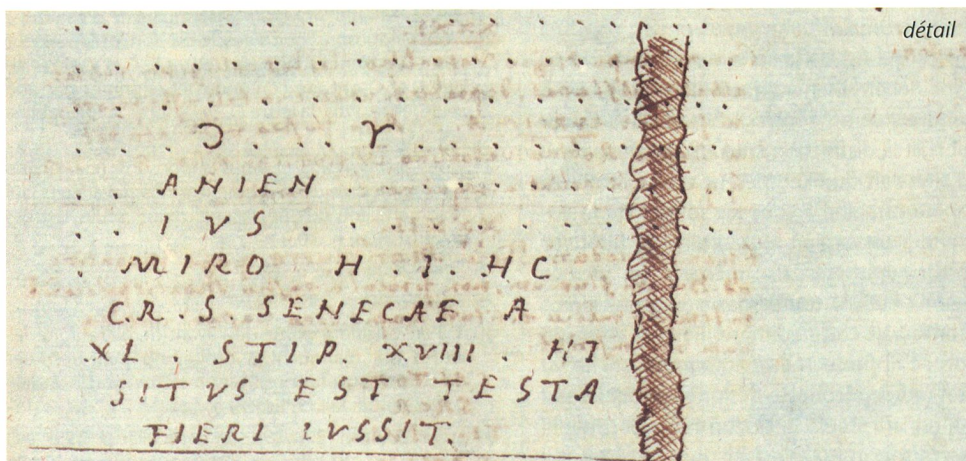 détail
Ɔ . . . . V
ANIEN
IVS
MIRO . H . I . HC
C.R. S SENECAE A
XL . STIP. XVIII . HT
SITVS EST TESTA
FIERI IVSSIT.